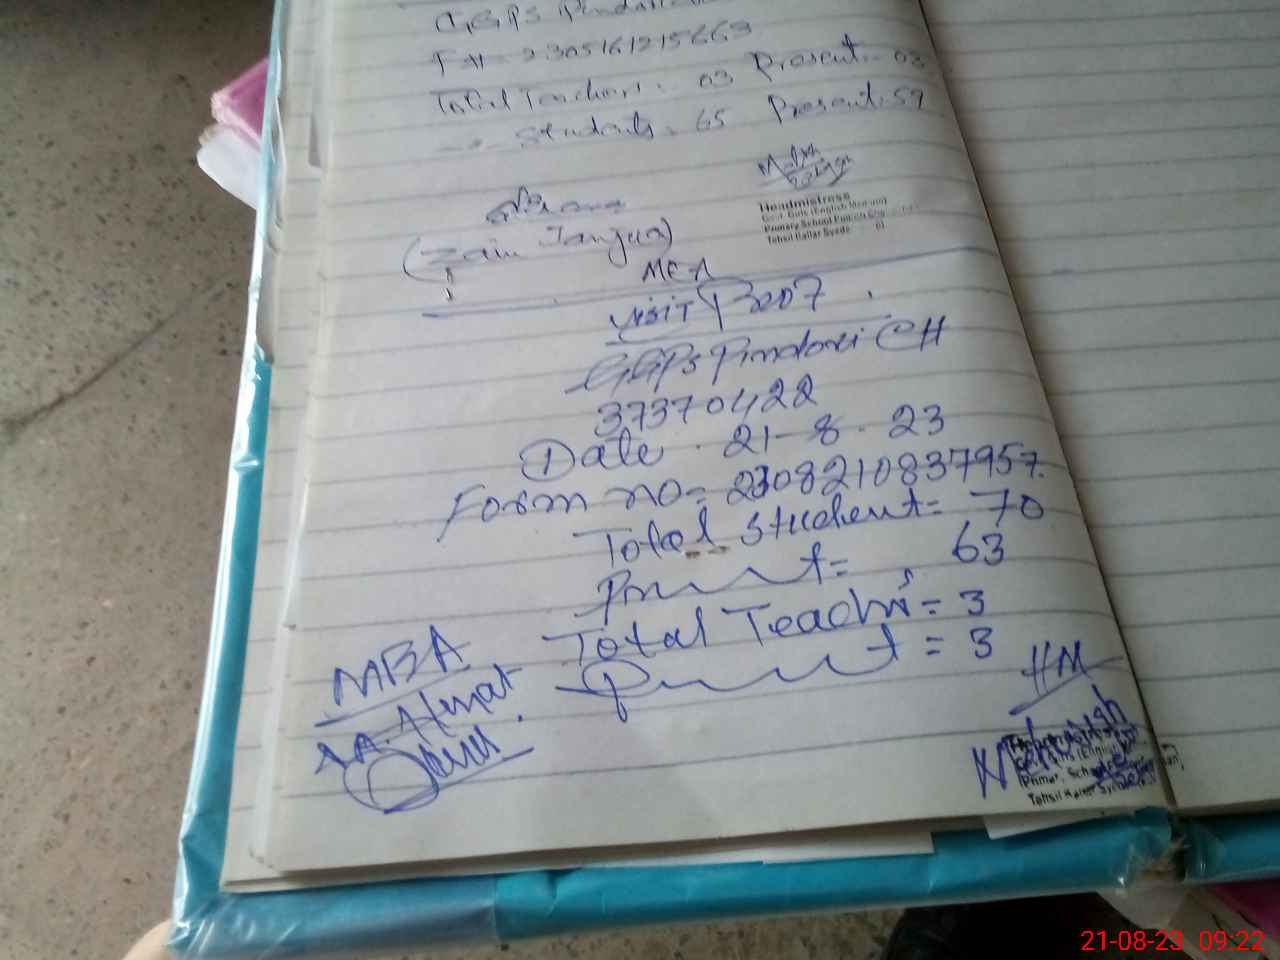 GGPS Pindori
F # = 2305161215663
Total Teachers. 03 Present. 03
Students. 65 Present. 59
Headmistress
Govt. Girls (English Medium)
Primary School Pindori
Tehsil Kallar Syedan
(Zain Janjua)
MEA
Visit
GGPS Pindori CH
37370422
Date . 21-8.23
Form no= 2308210837957.
Total Student= 70
Present= 63
Total Teachers = 3
Present = 3
MBA
HM
Primary School
Tehsil Kallar Syedan
21-08-23 09:22